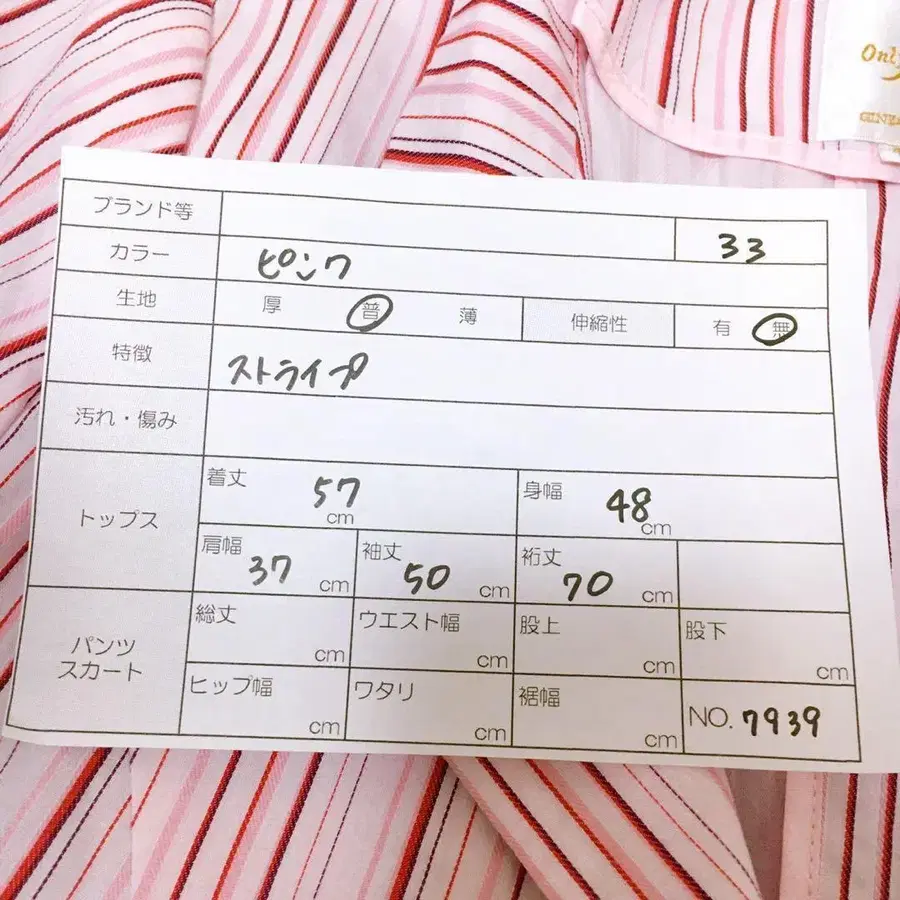 Onl
GINZA
ブランド等 33
カラー ピンク
生地 厚 普 薄 伸縮性 有 無
特徴 ストライプ
汚れ・傷み
トップス
着丈 57 cm 身幅 48 cm
肩幅 37 cm 袖丈 50 cm 裄丈 70 cm
パンツ
スカート
総丈 cm ウエスト幅 cm 股上 cm 股下 cm
ヒップ幅 cm ワタリ cm 裾幅 cm NO. 7939